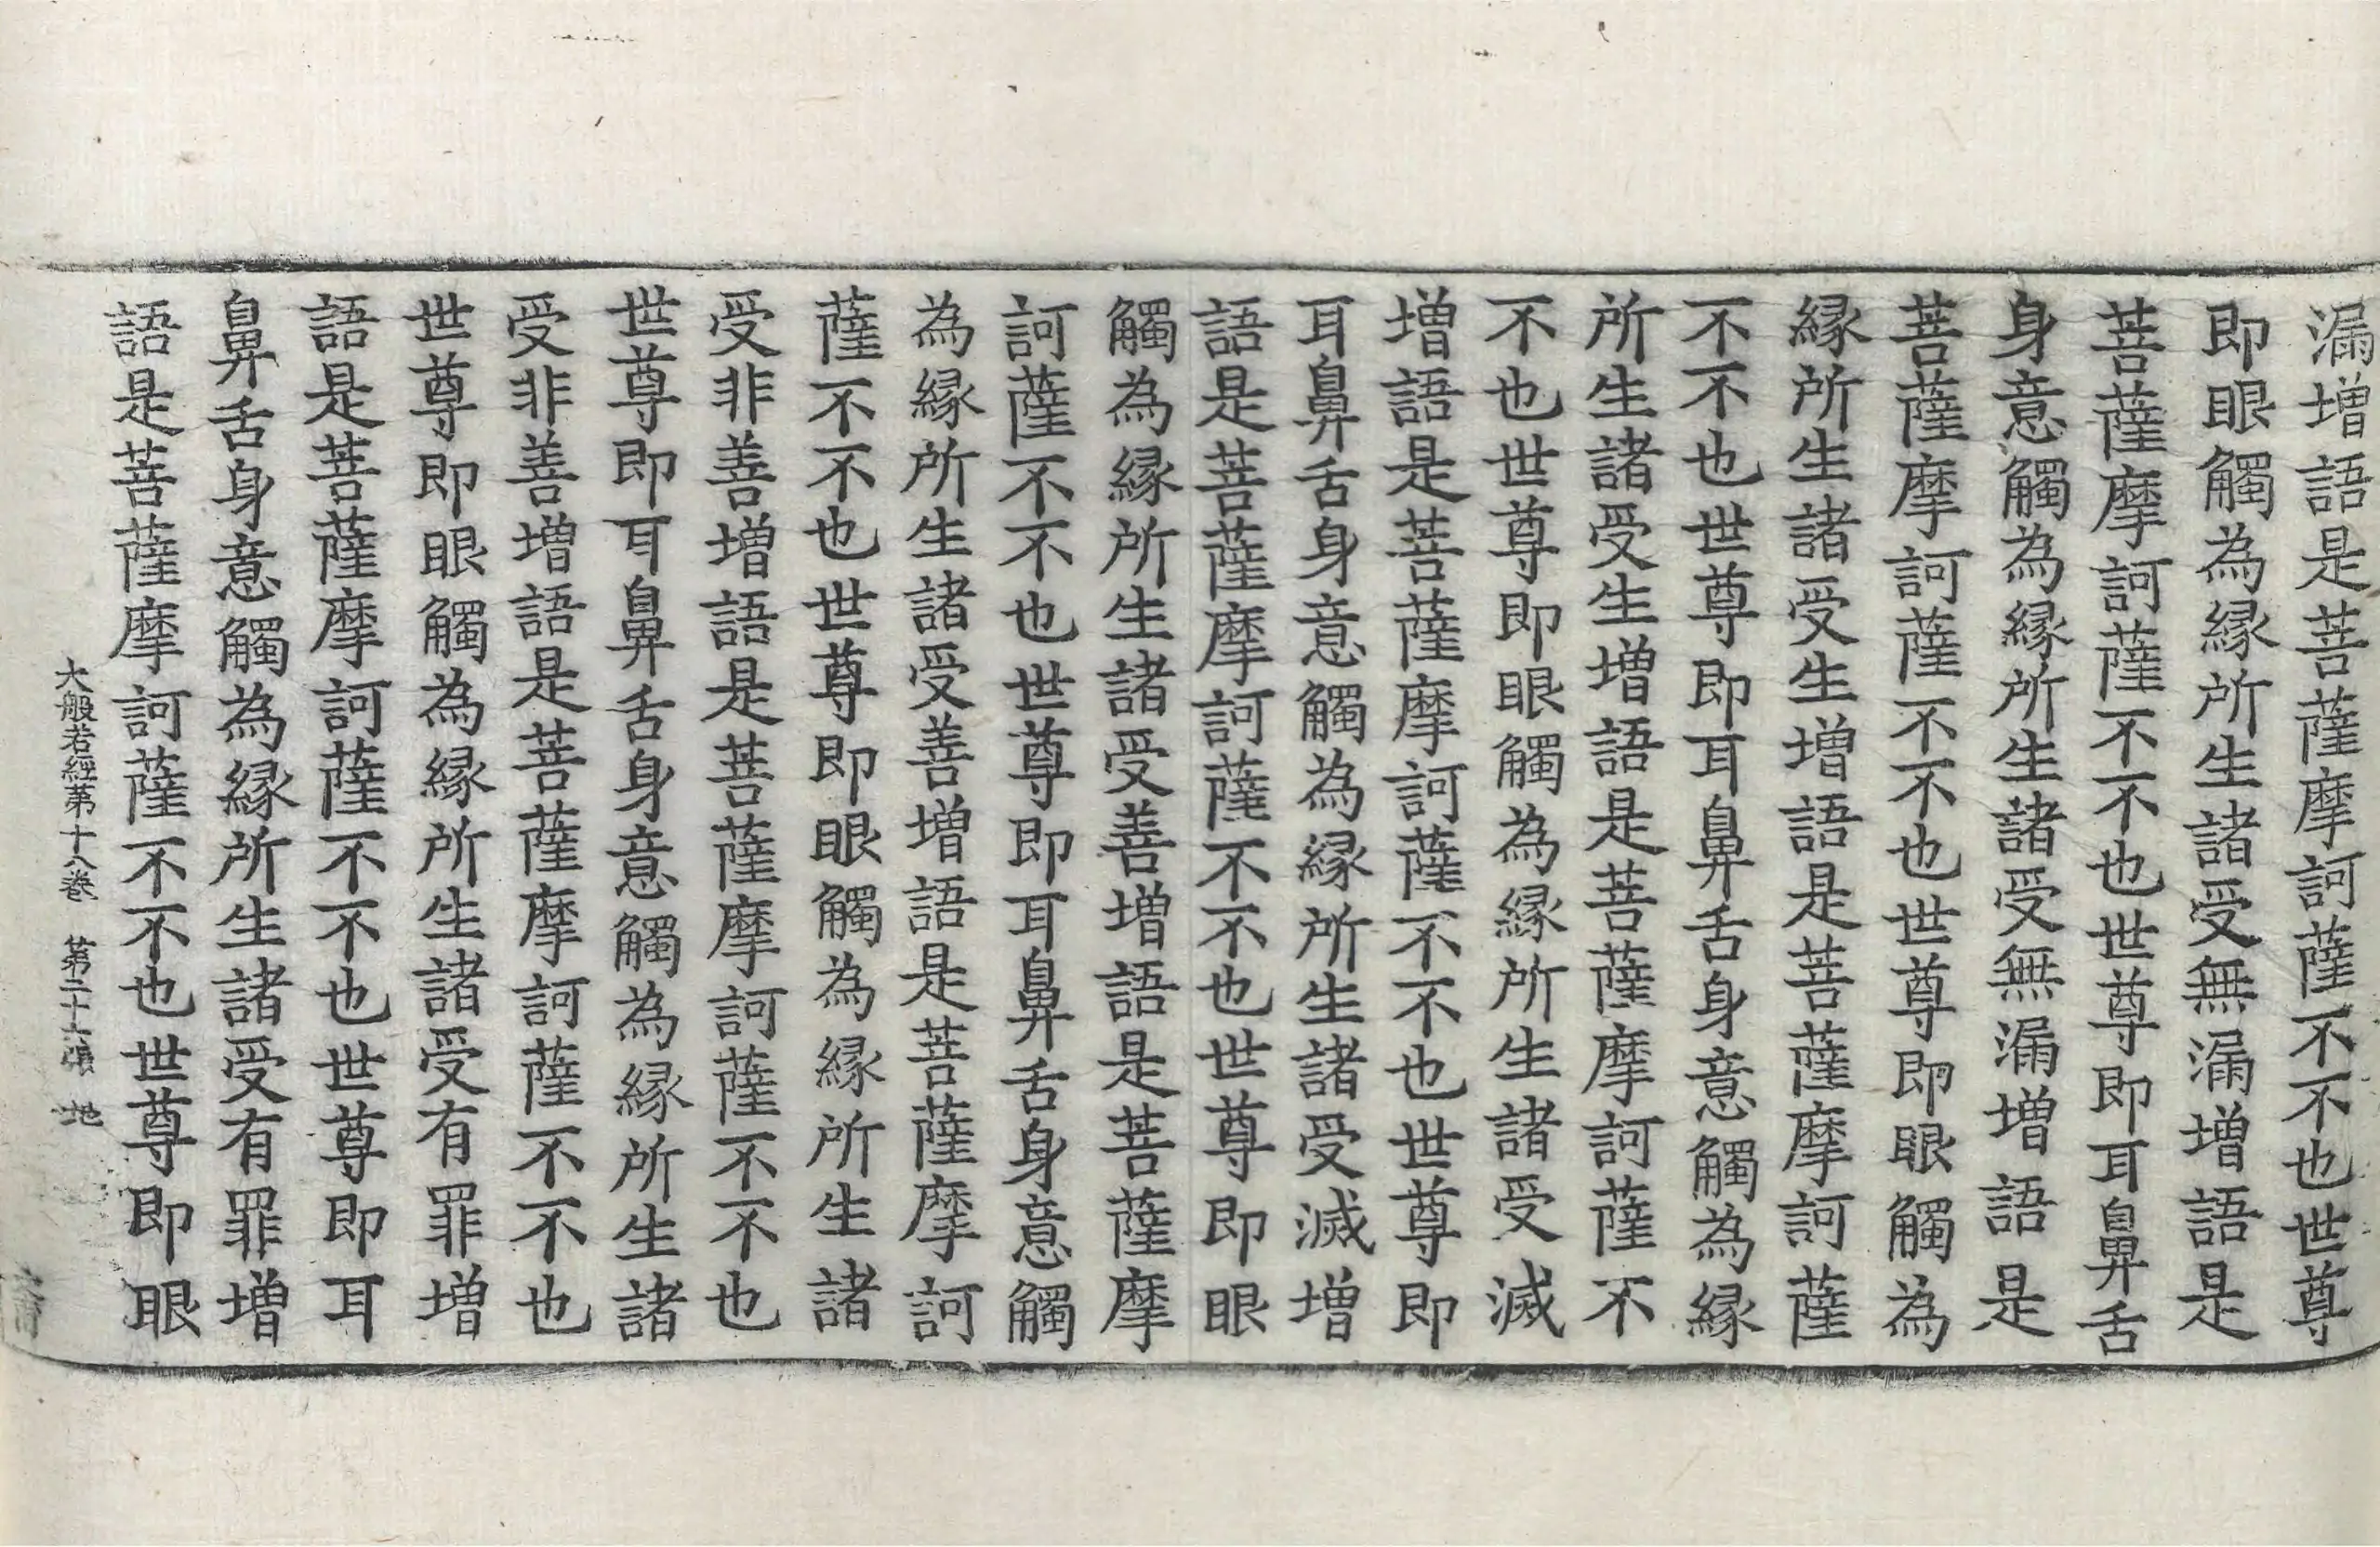 漏增語是菩薩摩訶薩不不也世尊
即眼觸為縁所生諸受無漏增語是
菩薩摩訶薩不不也世尊即耳鼻舌
身意觸為縁所生諸受無漏增語是
菩薩摩訶薩不不也世尊即眼觸為
縁所生諸受生增語是菩薩摩訶薩
不不也世尊即耳鼻舌身意觸為縁
所生諸受生增語是菩薩摩訶薩不
不也世尊即眼觸為縁所生諸受滅
增語是菩薩摩訶薩不不也世尊即
耳鼻舌身意觸為縁所生諸受滅增
語是菩薩摩訶薩不不也世尊即眼
觸為縁所生諸受善增語是菩薩摩
訶薩不不也世尊即耳鼻舌身意觸
為縁所生諸受善增語是菩薩摩訶
薩不不也世尊即眼觸為縁所生諸
受非善增語是菩薩摩訶薩不不也
世尊即耳鼻舌身意觸為縁所生諸
受非善增語是菩薩摩訶薩不不也
世尊即眼觸為縁所生諸受有罪增
語是菩薩摩訶薩不不也世尊即耳
鼻舌身意觸為縁所生諸受有罪增
語是菩薩摩訶薩不不也世尊即眼
大般若經第十八巻 第二十六張 地